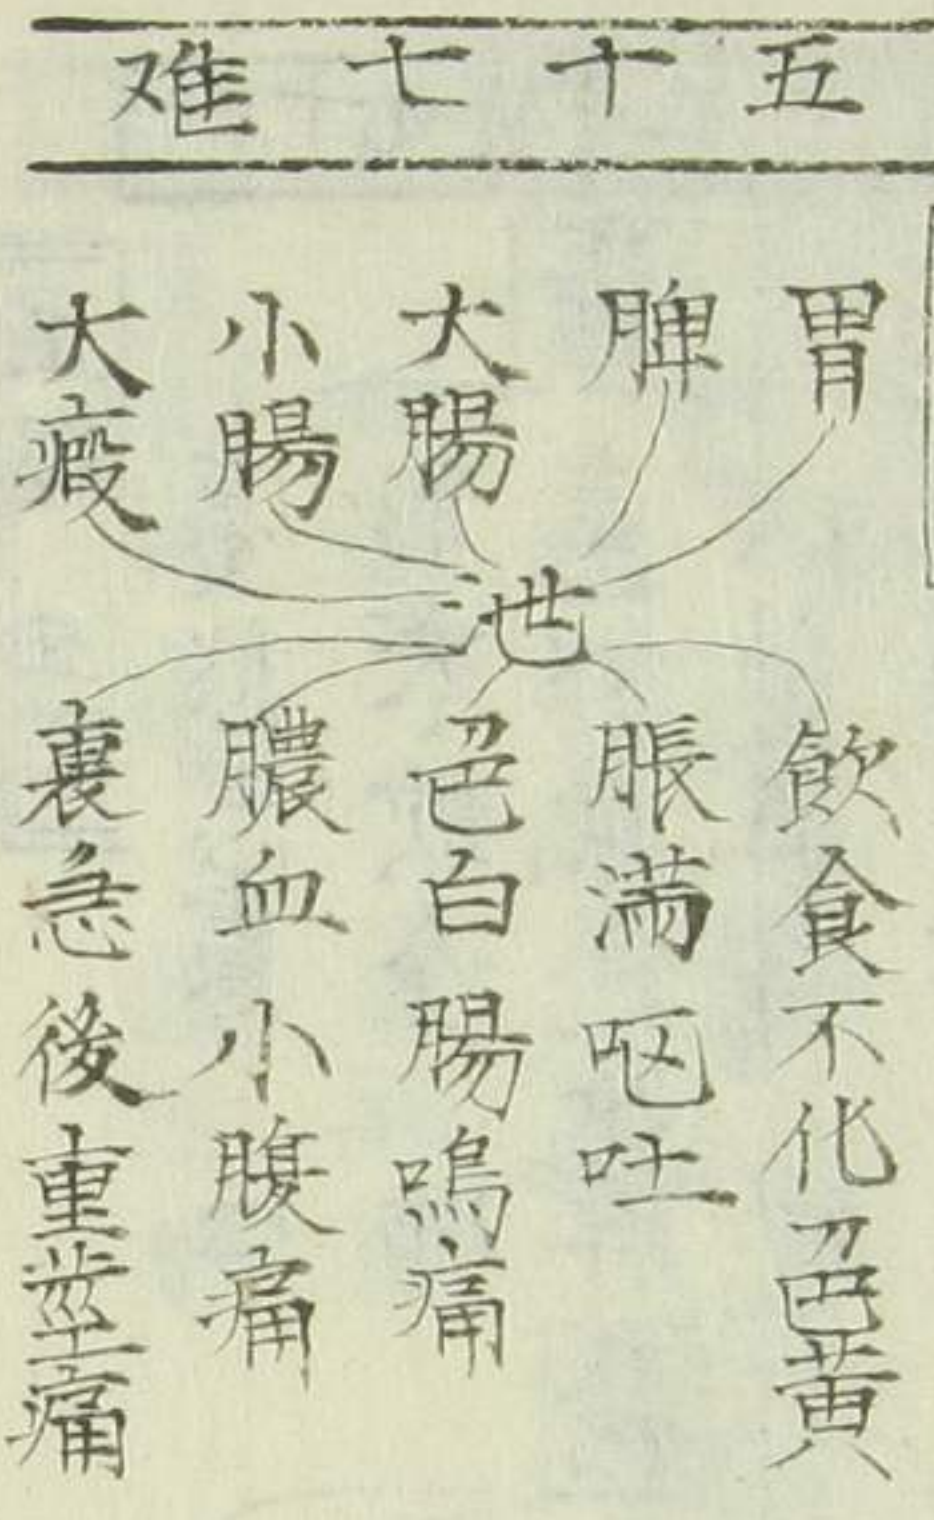 五十七难
胃
脾
大腸
小腸
大瘕
泄
飲食不化色黄
脹滿呕吐
色白腸鳴痛
膿血小腹痛
裏急後重莖痛